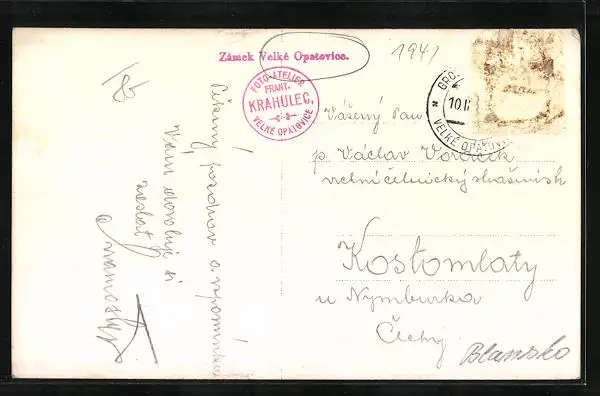 Zámek Velké Opatovice.
1941
FOTO-ATELIER
FRANT.
KRAHULEC,
VELKÉ OPATOVICE
10.II
VELKÉ OPATOV
Vážený Pan
p. Václav Vorlíček
Kostomlaty
u Nymburka
Čechy
Blansko
pozdrav a vzpomínku
Vám dovoluje si
zaslat